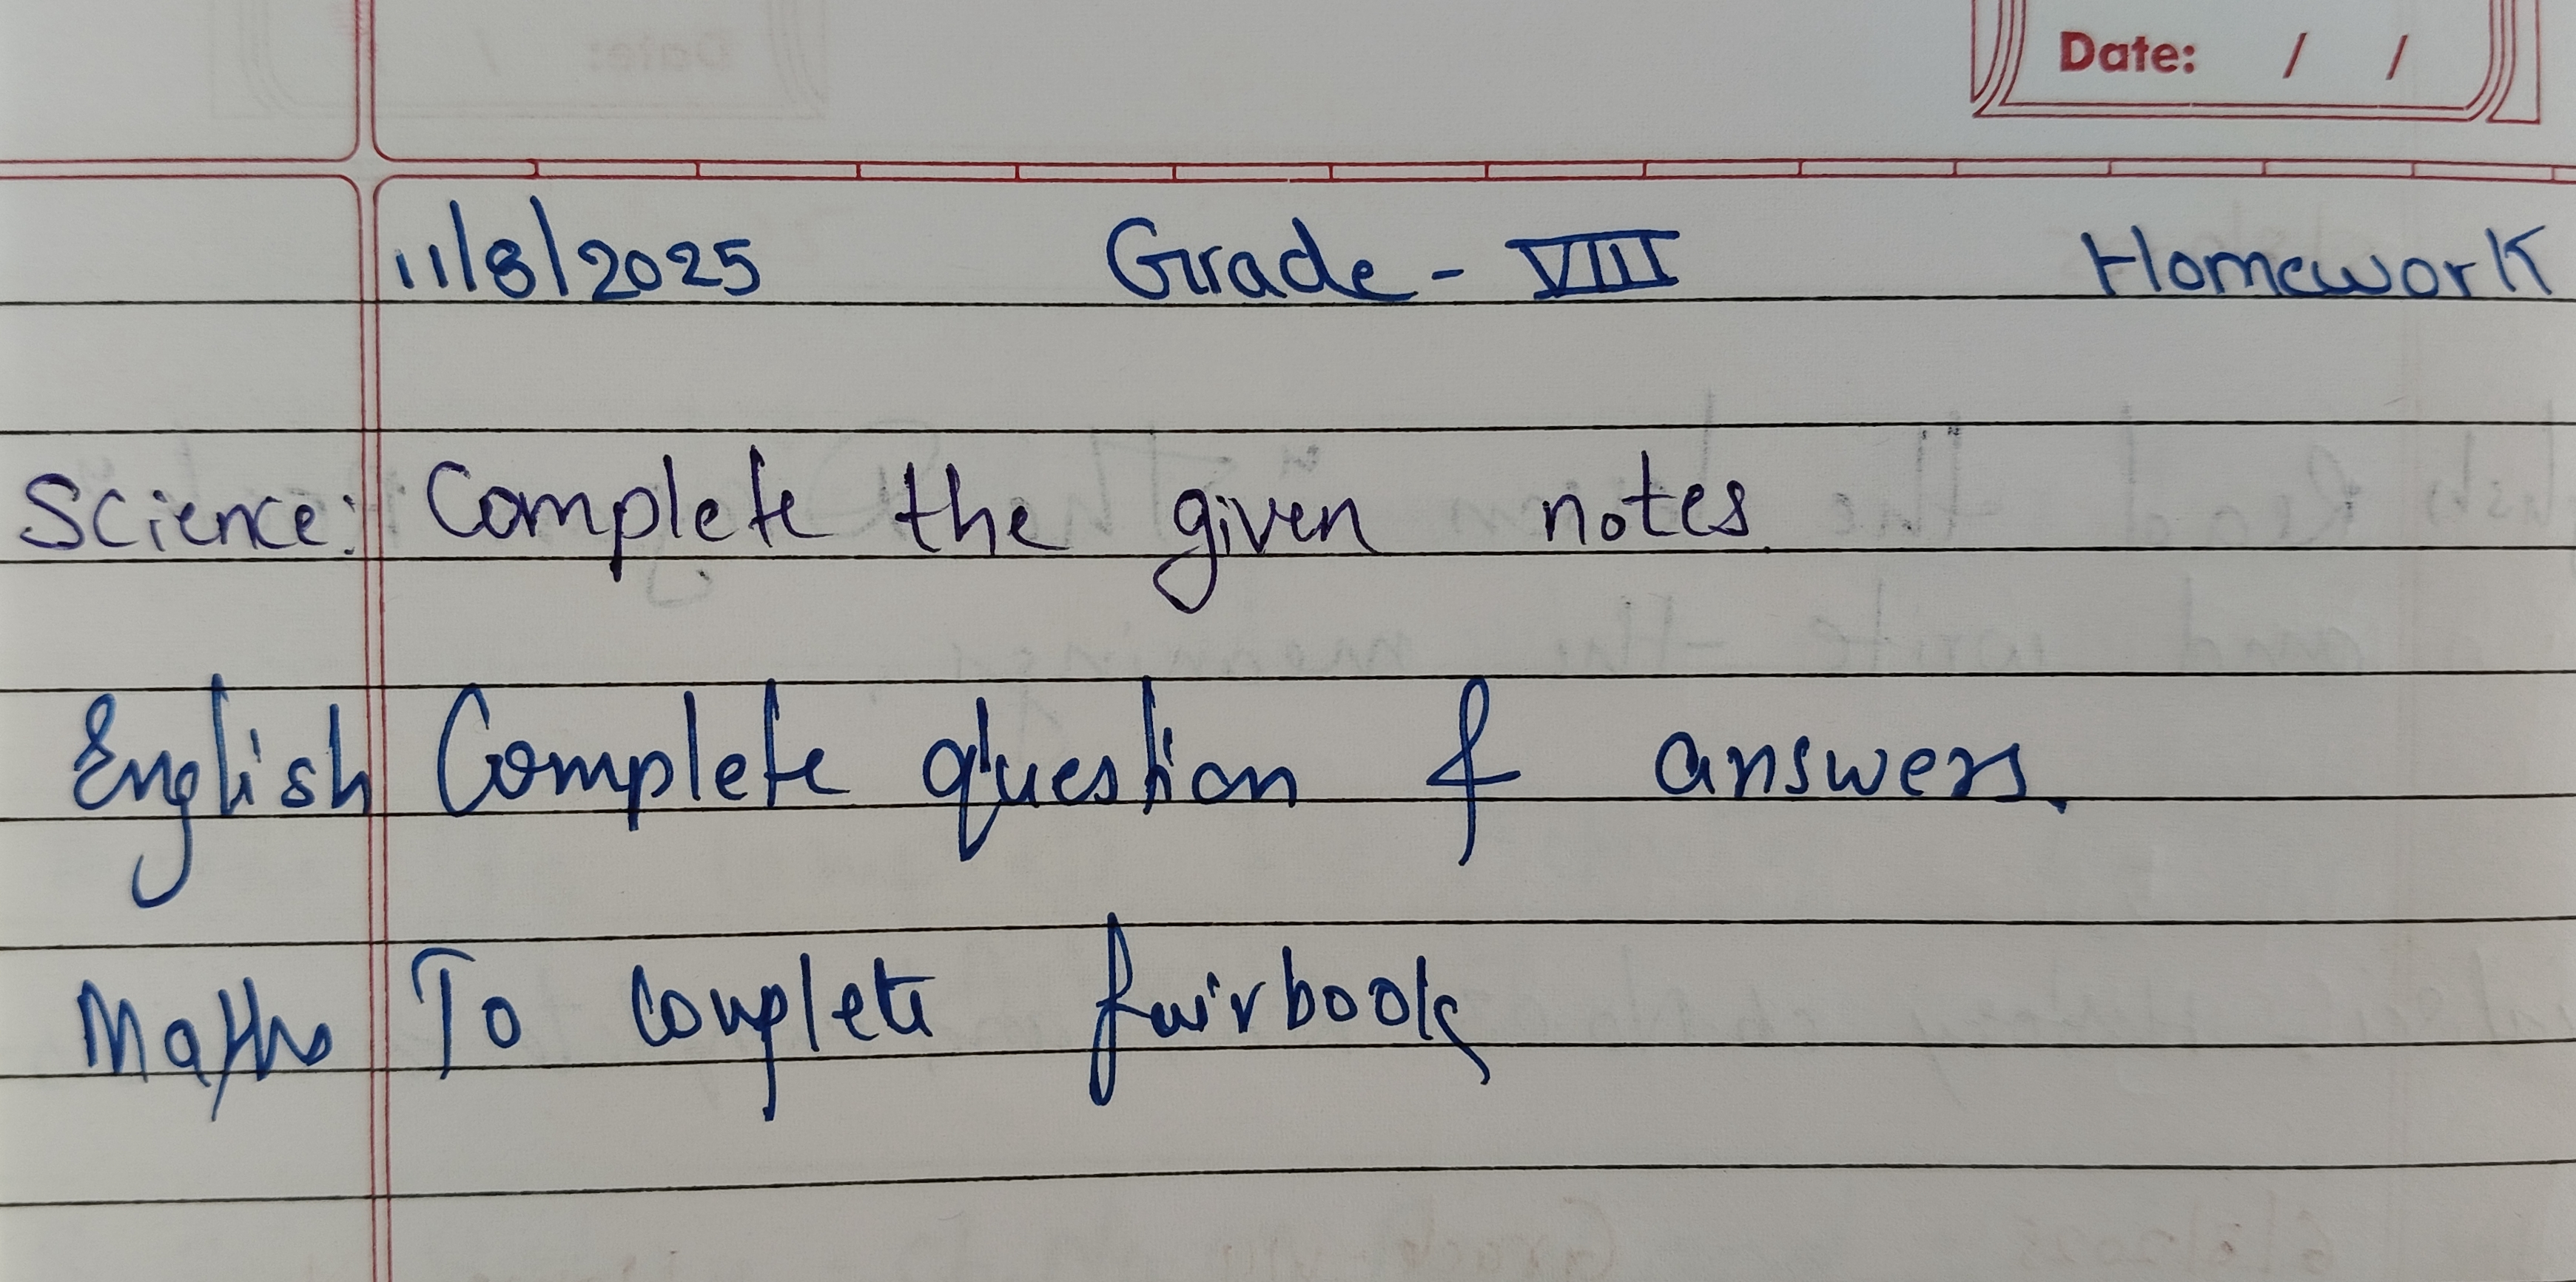 Date: / /
11/8/2025 Grade - VIII Homework
Science: Complete the given notes.
English Complete question & answers.
Maths To complete fairbook